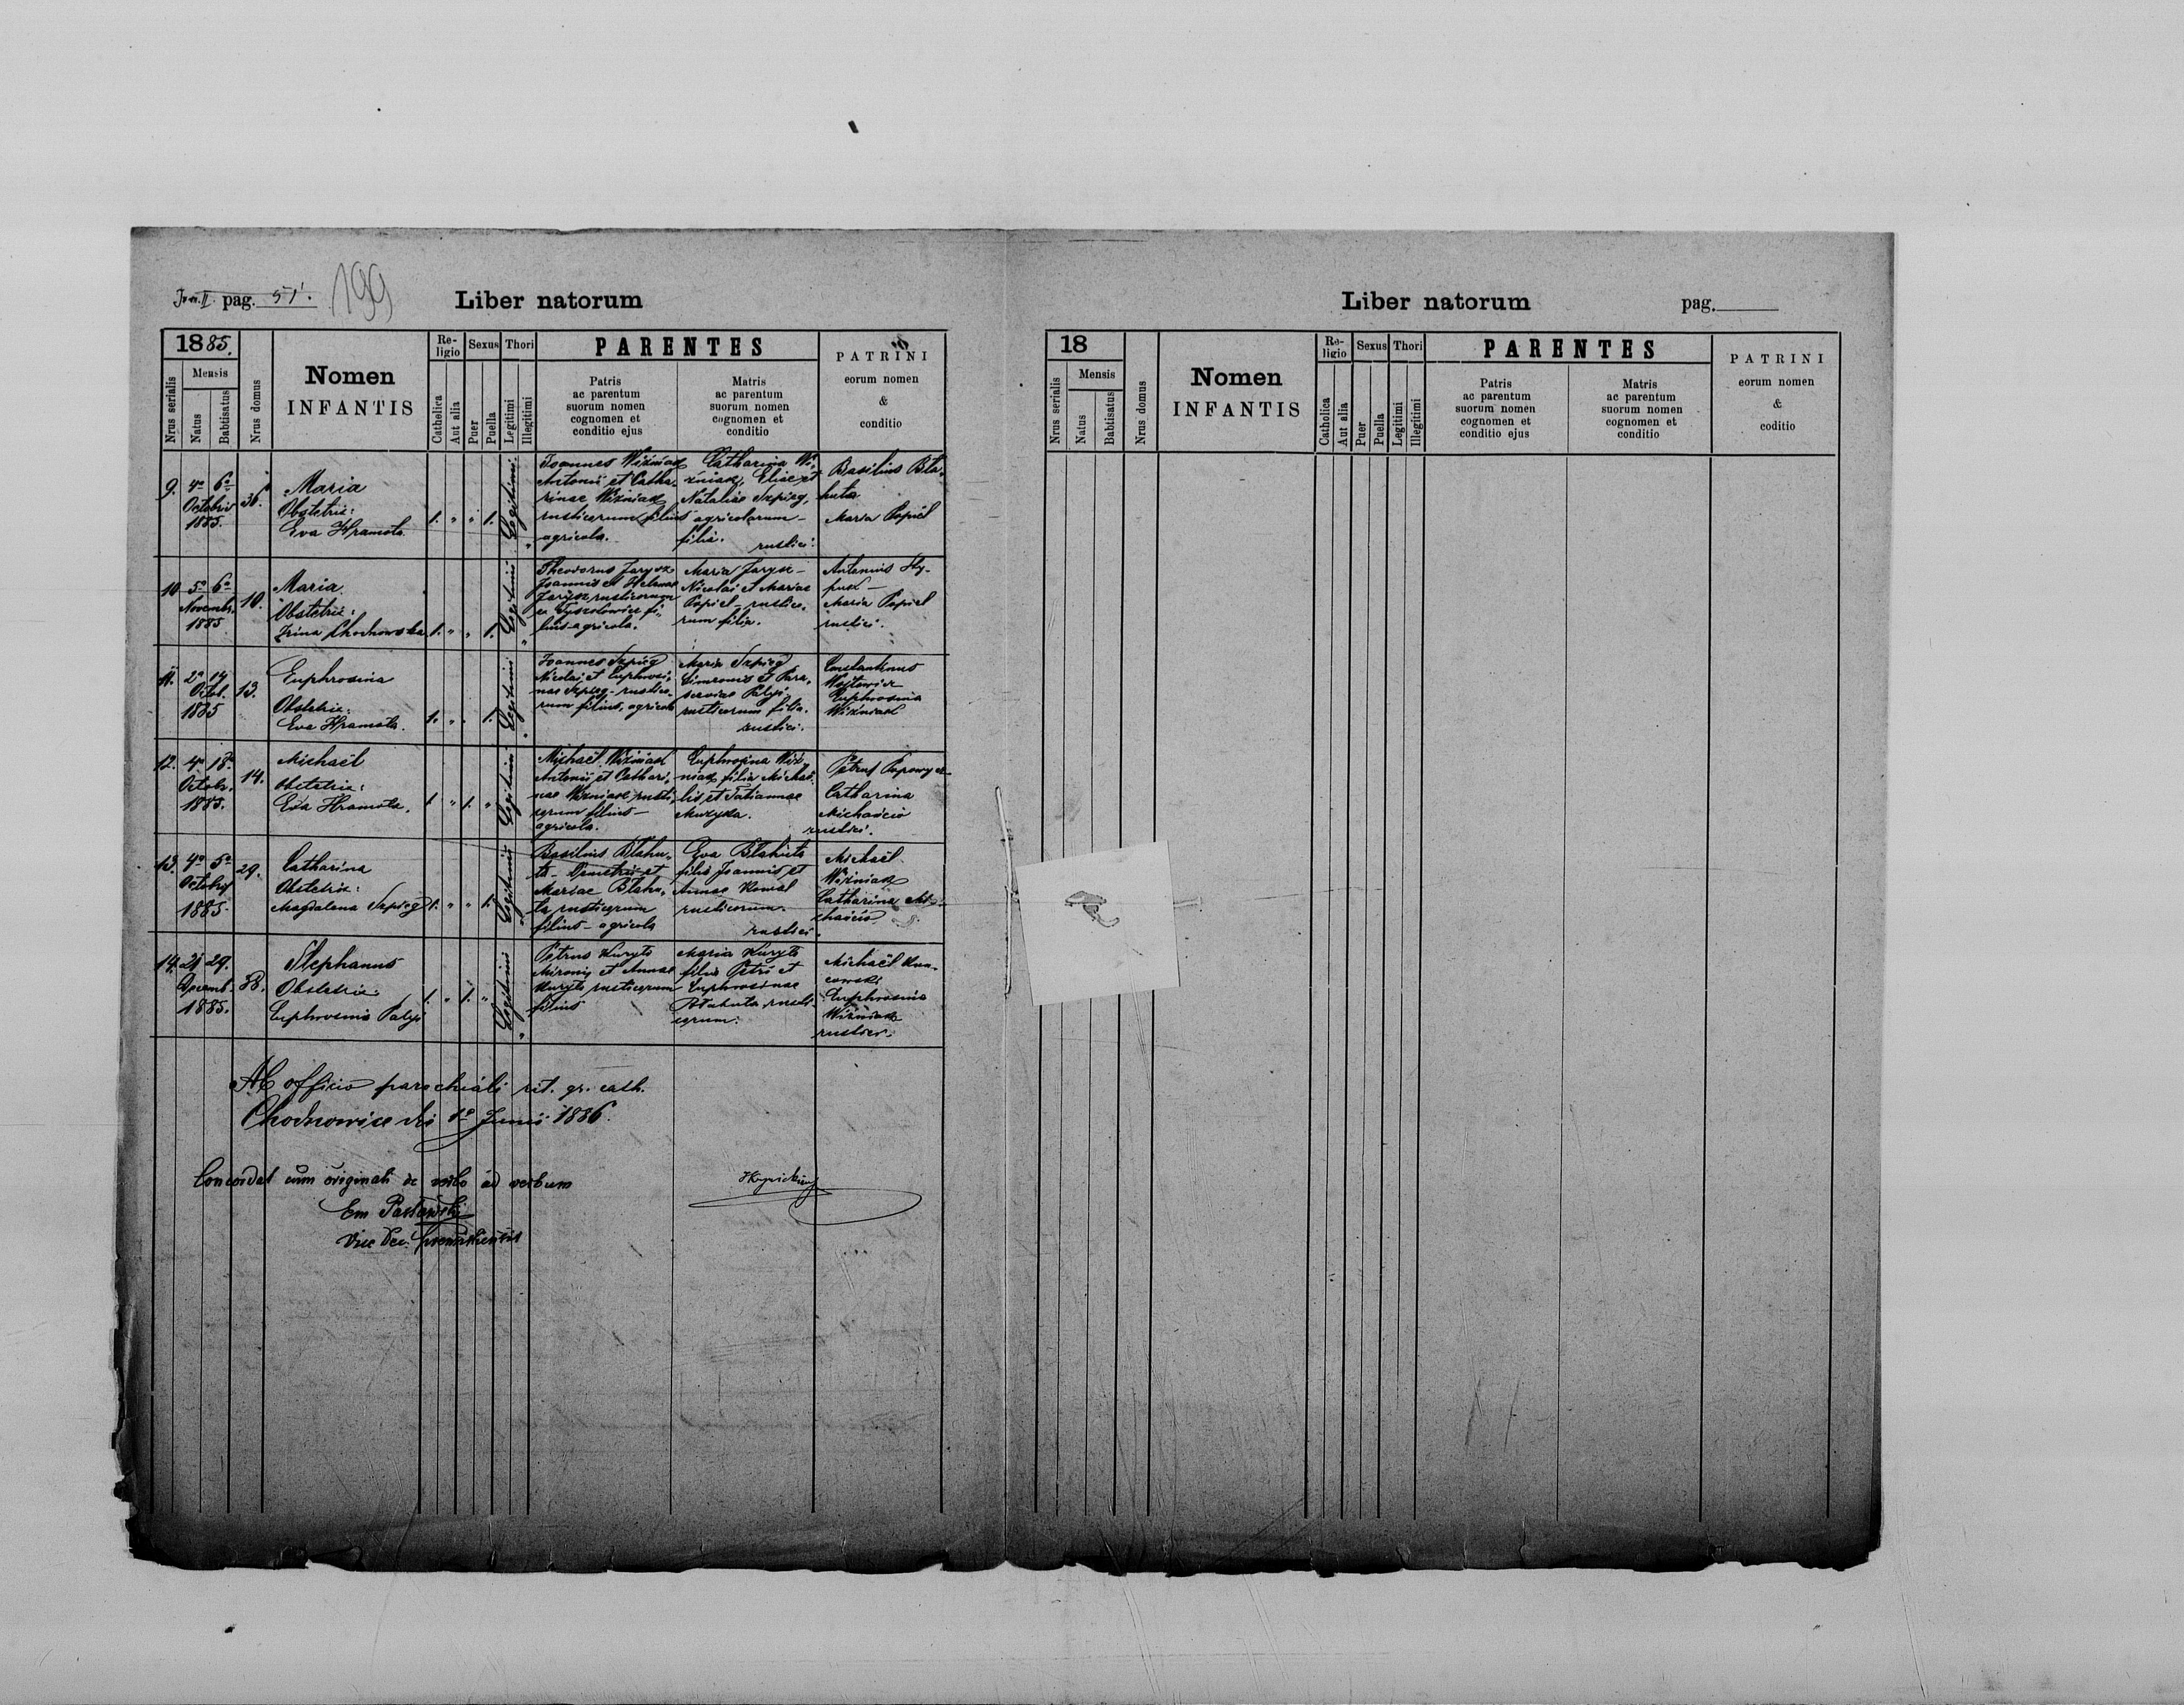 pag. 51. 199
Liber natorum
1885.
Mensis
Nrus serialis
Natus
Babtisatus
Nrus domus
Nomen
INFANTIS
Religio
Catholica
Aut alia
Sexus
Puer
Puella
Thori
Legitimi
Illegitimi
PARENTES
Patris
ac parentum
suorum nomen
cognomen et
conditio ejus
Matris
ac parentum
suorum nomen
cognomen et
conditio
PATRINI
eorum nomen
&
conditio
9. 4a 6a
Octobris
1885.
36.
Maria
Obstetrix:
Eva Hramota.
1. " " 1. Legitimi "
Joannes Wiźniak
Antonii et Catha-
rinae Wiźniak
rusticorum filius
agricola.
Catharina Wi-
źniak, Eliae et
Nataliae Szpieg,
agricolarum
filia.
Basilius Bla-
huta
Maria Popiel
rustici.
10 5a 6a
Novemb.
1885
10.
Maria.
Obstetrix:
Irina Chochowska
1. " " 1. Legitimi "
Theodorus Jarysz
Joannis et Helenae
Jarysz rusticorum
filius agricola.
Maria Jarysz
Nicolai et Mariae
Popiel rustico-
rum filia.
Antonius
Maria Popiel
rustici.
11. 2a 14
Octob.
1885
13.
Euphrosina
Obstetrix:
Eva Hramota.
1. " " 1. Legitimi "
Joannes Szpieg
Nicolai et Euphrosi-
nae Szpieg rustico-
rum filius, agricola
Maria Szpieg
Simeonis et Para-
sceviae Palyi
rusticorum filia.
Constantinus
Wojtowicz
Euphrosina
Wiźniak
rustici.
12. 4a 18a
Octobr.
1885.
14.
Michaël
Obstetrix:
Eva Hramota.
1. " 1. " Legitimi
Michaël Wiźniak
Antonii et Cathari-
nae Wiźniak rusti-
corum filius
agricola.
Euphrosina Wiź-
niak filia Michaë-
lis et Tatiannae
Muzyka.
Petrus Popowycz
Catharina
Michaścio
rustici.
13. 4a 5a
Octobris
1885.
29.
Catharina
Obstetrix:
Magdalena Szpieg
1. " " 1. Legitimi "
Basilius Blahu-
ta Demetrii et
Mariae Blahu-
ta rusticorum
filius agricola
Eva Blahuta
filia Joannis et
Annae Kowal
rusticorum.
Michaël
Wiźniak
Catharina Mi-
chaścio
rustici.
14. 21 29.
Decemb.
1885.
38.
Stephanus
Obstetrix:
Euphrosina Palyi
1. " 1. " Legitimi "
Petrus Kuryto
Mironis et Annae
Kuryto rusticorum
filius
Maria Kuryto
filia Petri et
Euphrosinae
Blahuta rusti-
corum.
Michaël
Euphrosina
Wiźniak
rustici.
Ab officio parochiali rit. gr. cath.
Chodnowice die 1o Junii 1886.
Concordat cum originali de verbo ad verbum
Em Pasławski
Vice Dec.
Liber natorum
pag.
18
Mensis
Nrus serialis
Natus
Babtisatus
Nrus domus
Nomen
INFANTIS
Religio
Catholica
Aut alia
Sexus
Puer
Puella
Thori
Legitimi
Illegitimi
PARENTES
Patris
ac parentum
suorum nomen
cognomen et
conditio ejus
Matris
ac parentum
suorum nomen
cognomen et
conditio
PATRINI
eorum nomen
&
coditio